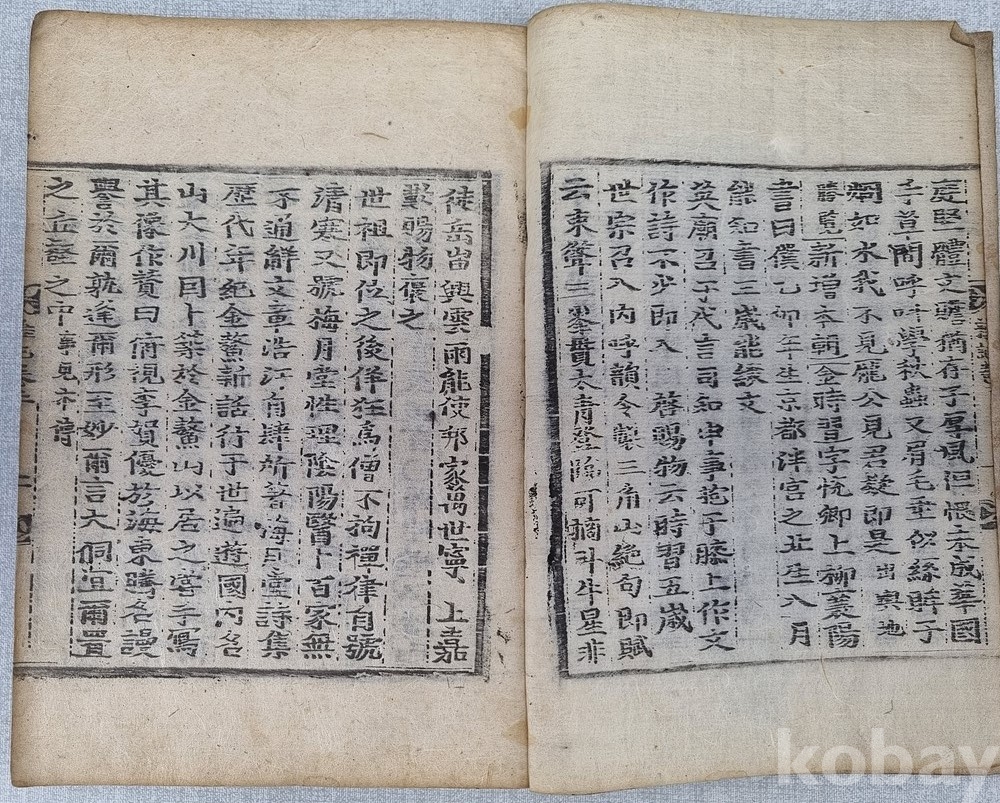 處堅體文聽猶存子厚風但恨未成華國
手首開呼吁學秋蟲又眉毛垂似絲眸子
烱如水我不見龐公見君疑即是出輿地
勝覽新增本朝金時習字悅卿上柳襄陽
書曰僕乙卯年生京都泮宮之北生八月
能知書三歲能綴文
英廟召于代言司知申事抱于膝上作文
作詩不少即入 啓賜物云時習五歲
世宗召入內呼韻令製三角山絶句即賦
云束聳三峯貫太靑登臨可摘斗牛星非
徒岳岫興雲雨能使邦家萬世寧 上嘉
歎賜物還之
世祖即位之後佯狂爲僧不拘禪律自號
淸寒又號梅月堂性理陰陽醫卜百家無
不通解文章浩汗自肆所著梅月堂詩集
歷代年紀金鰲新話行于世遍遊國內名
山大川因卜築於金鰲山以居之嘗手寫
其像作贊曰俯視李賀優於海東騰名謾
譽於爾孰逢爾形至妙爾言大侗宜爾置
之丘壑之中事見本傳
kobay